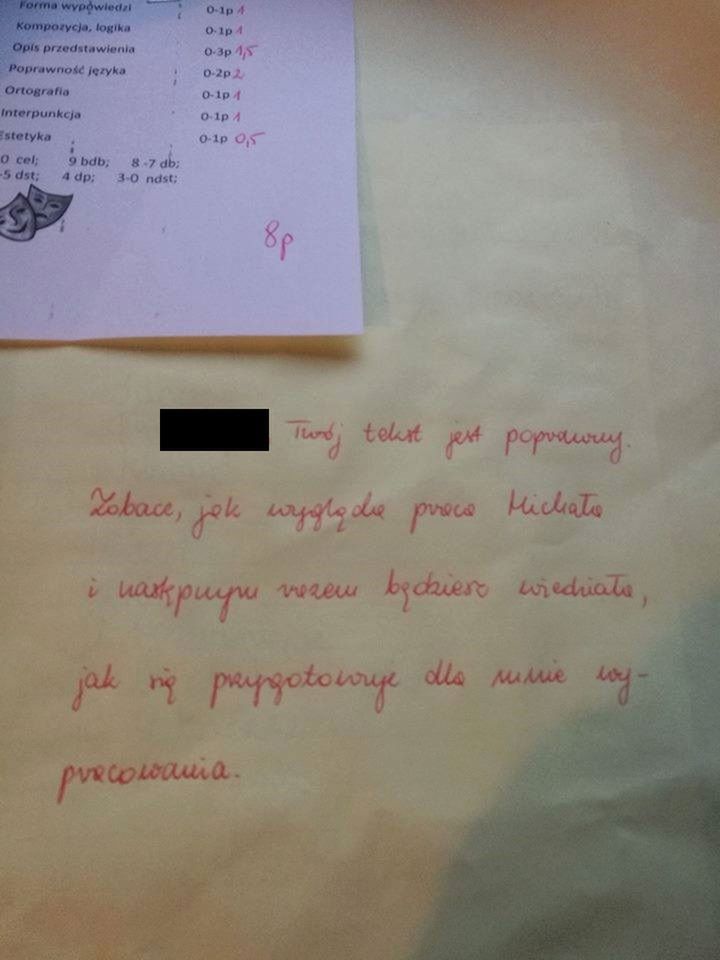 Forma wypowiedzi 0-1p 1
Kompozycja, logika 0-1p 1
Opis przedstawienia 0-3p 1,5
Poprawność języka 0-2p 2
Ortografia 0-1p 1
Interpunkcja 0-1p 1
Estetyka 0-1p 0,5
0 cel; 9 bdb; 8-7 db;
-5 dst; 4 dp; 3-0 ndst;
8p
Twój tekst jest poprawny.
Zobacz, jak wygląda praca Michała
i następnym razem będziesz wiedziała,
jak się przygotowuje dla mnie wy-
pracowania.